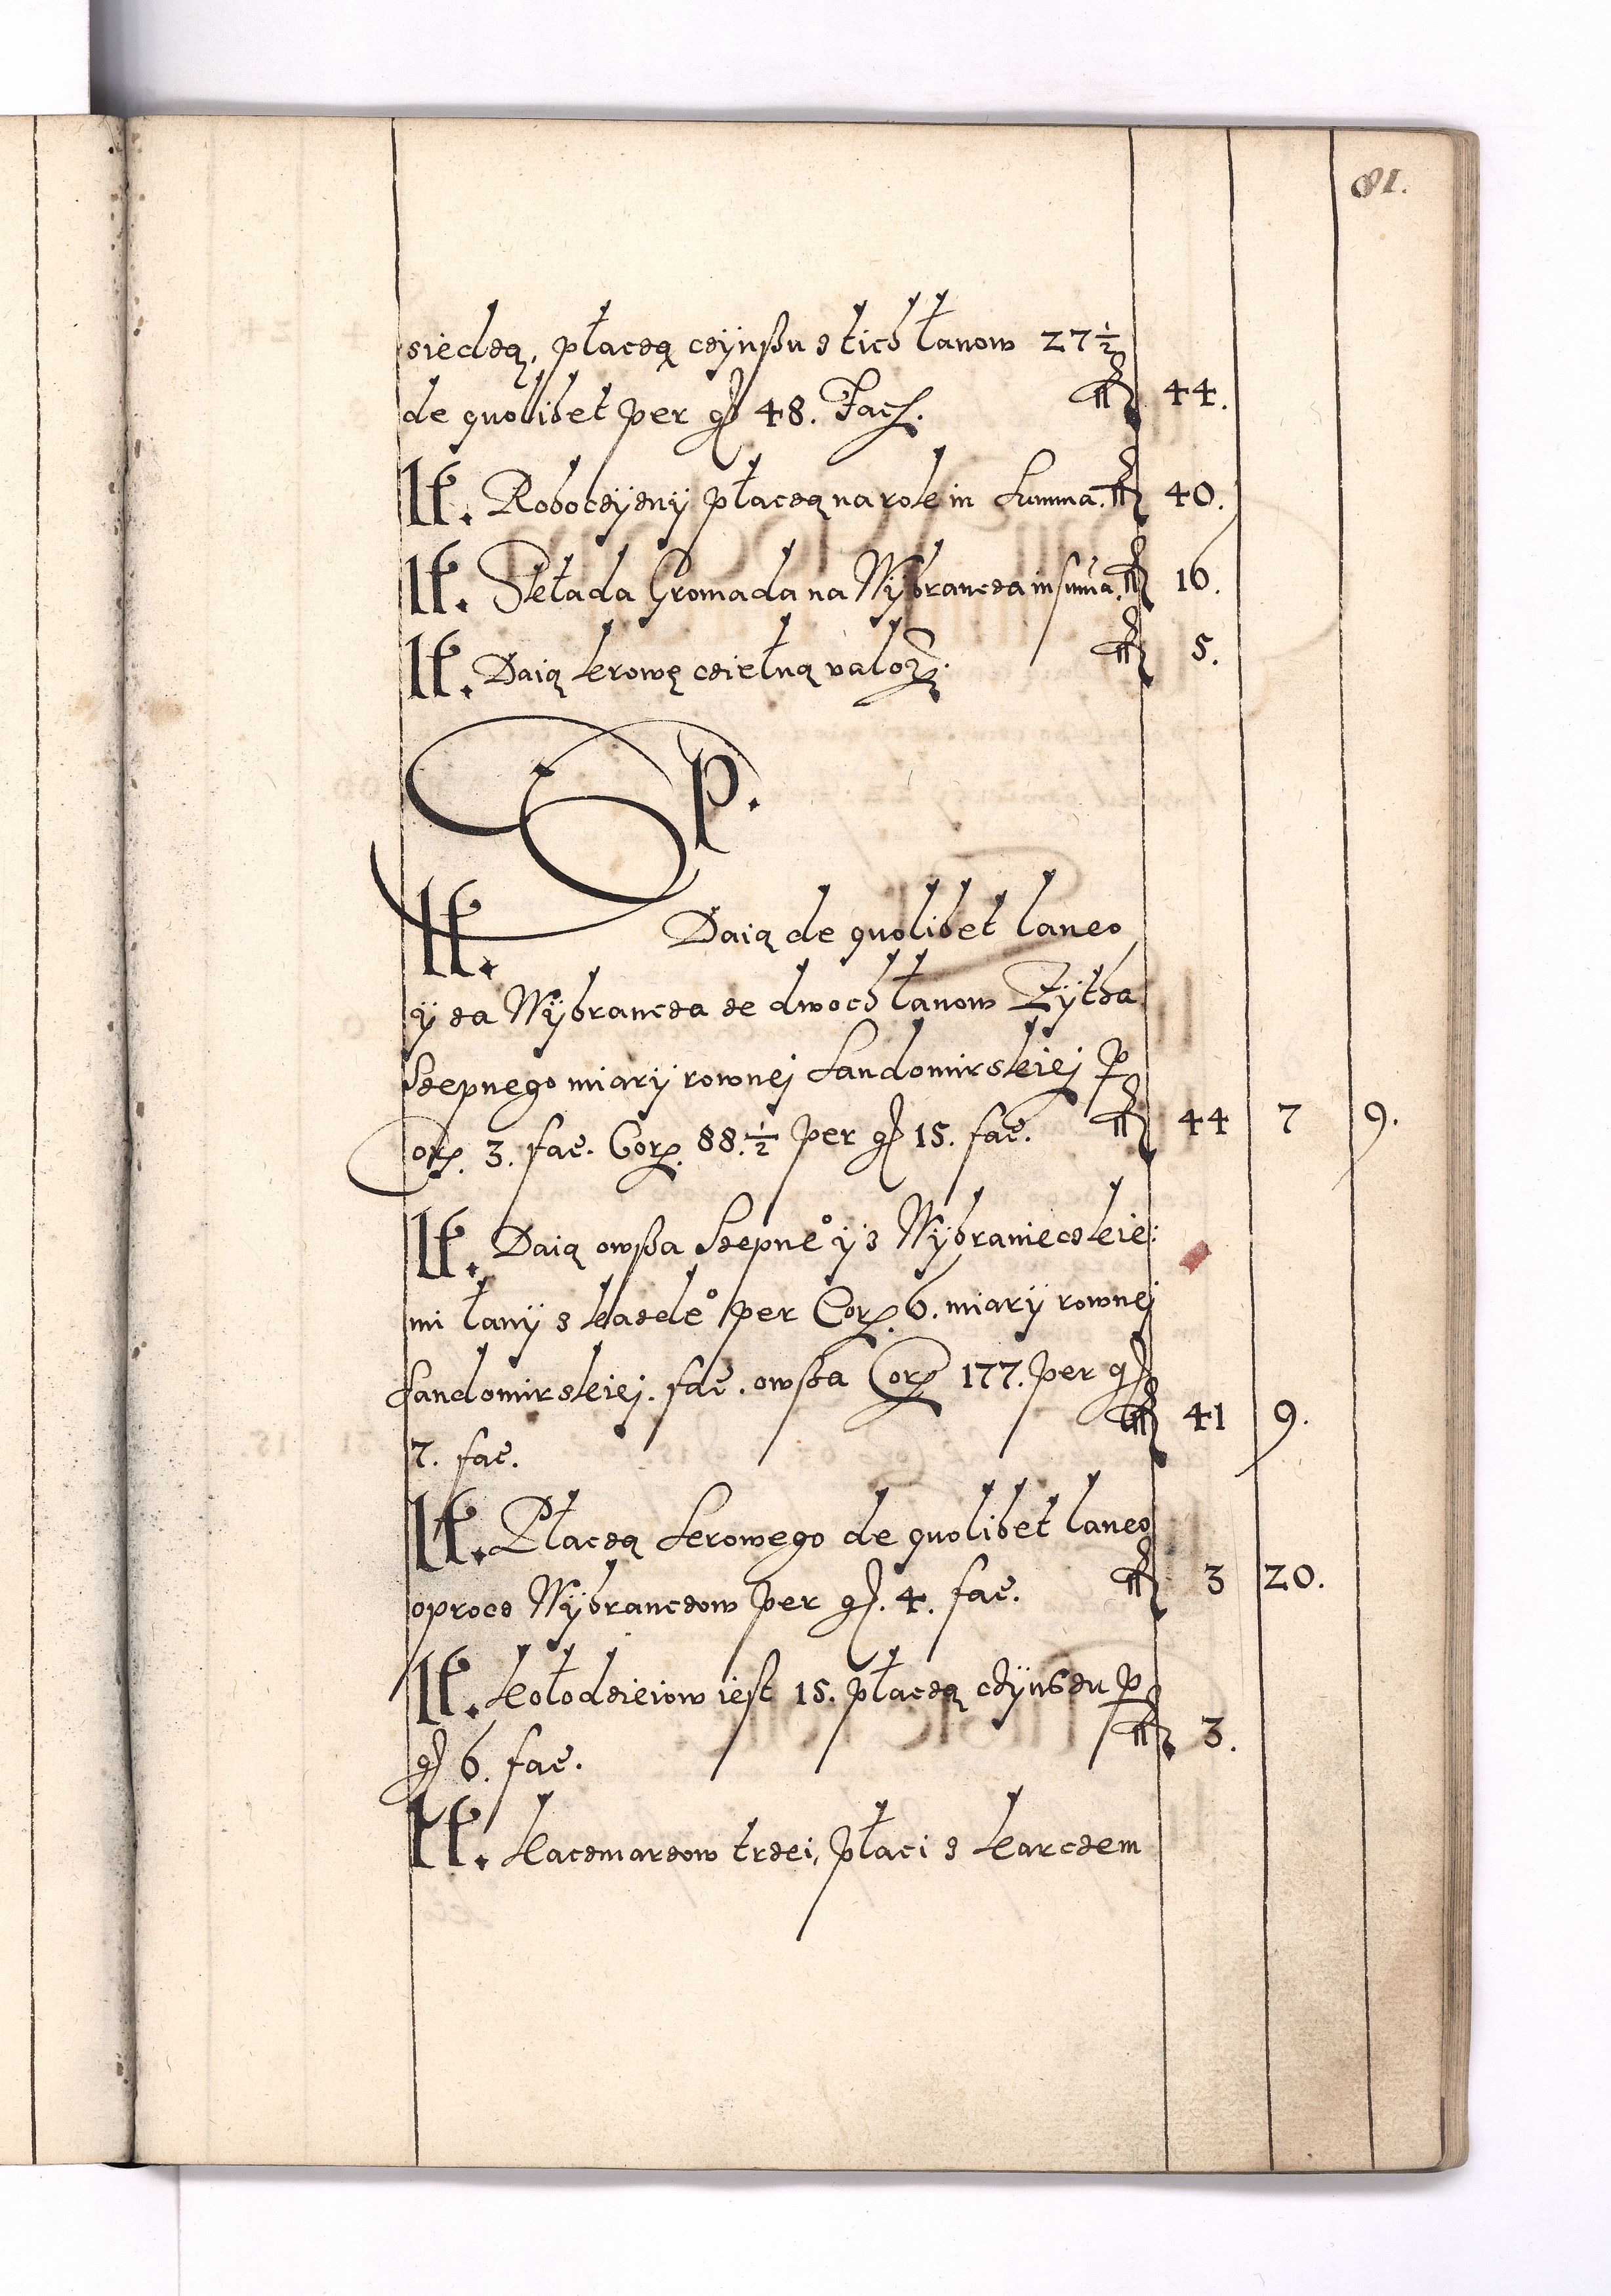 81.
siedzą, płaczą czÿnßu z tich łanow 27½
de quolibet per gł 48. Facł. fł 44.
It. Roboczÿznÿ płaczą na rok in Summa. fł 40.
It. Składa Gromada na Wÿbrancza in suma. fł 16.
It. Daią krowę czielną valoꝝ. fł 5.
Sp.
It. Daią de quolibet laneo
ÿ za Wÿbrancza ze dwoch łanow Zÿtha
Szepnego miarÿ rownej Sandomirskiej ꝑ
Corꝝ. 3. fac. Corꝝ. 88.½ per gł 15. fac. fł 44 7 9.
It. Daią owßa Szepne° ÿ z Wÿbranieczkie:
mi łanÿ z każde° per Corꝝ. 6. miarÿ rownej
Sandomirskiej. fac. owßa Corꝝ 177. per gł
7. fac. fł 41 9.
It. Płaczą Serowego de quolibet laneo
oprocz Wÿbranczow per gł. 4. fac. fł 3 20.
It. Kołodzieiow iest 15. płaczą czÿnßzu ꝑ
gł 6. fac. fł 3.
It. Kaczmarzow trzei, płaci z karczem